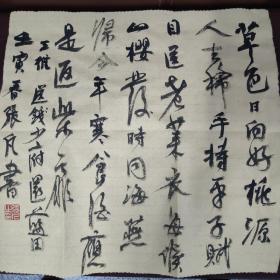 草色日向好桃源
人去稀手持平子賦
目送老莱衣每候
山櫻發時同海燕
歸今年寒食酒應
是返柴扉
王維送錢少府還藍田
壬寅春張凡書